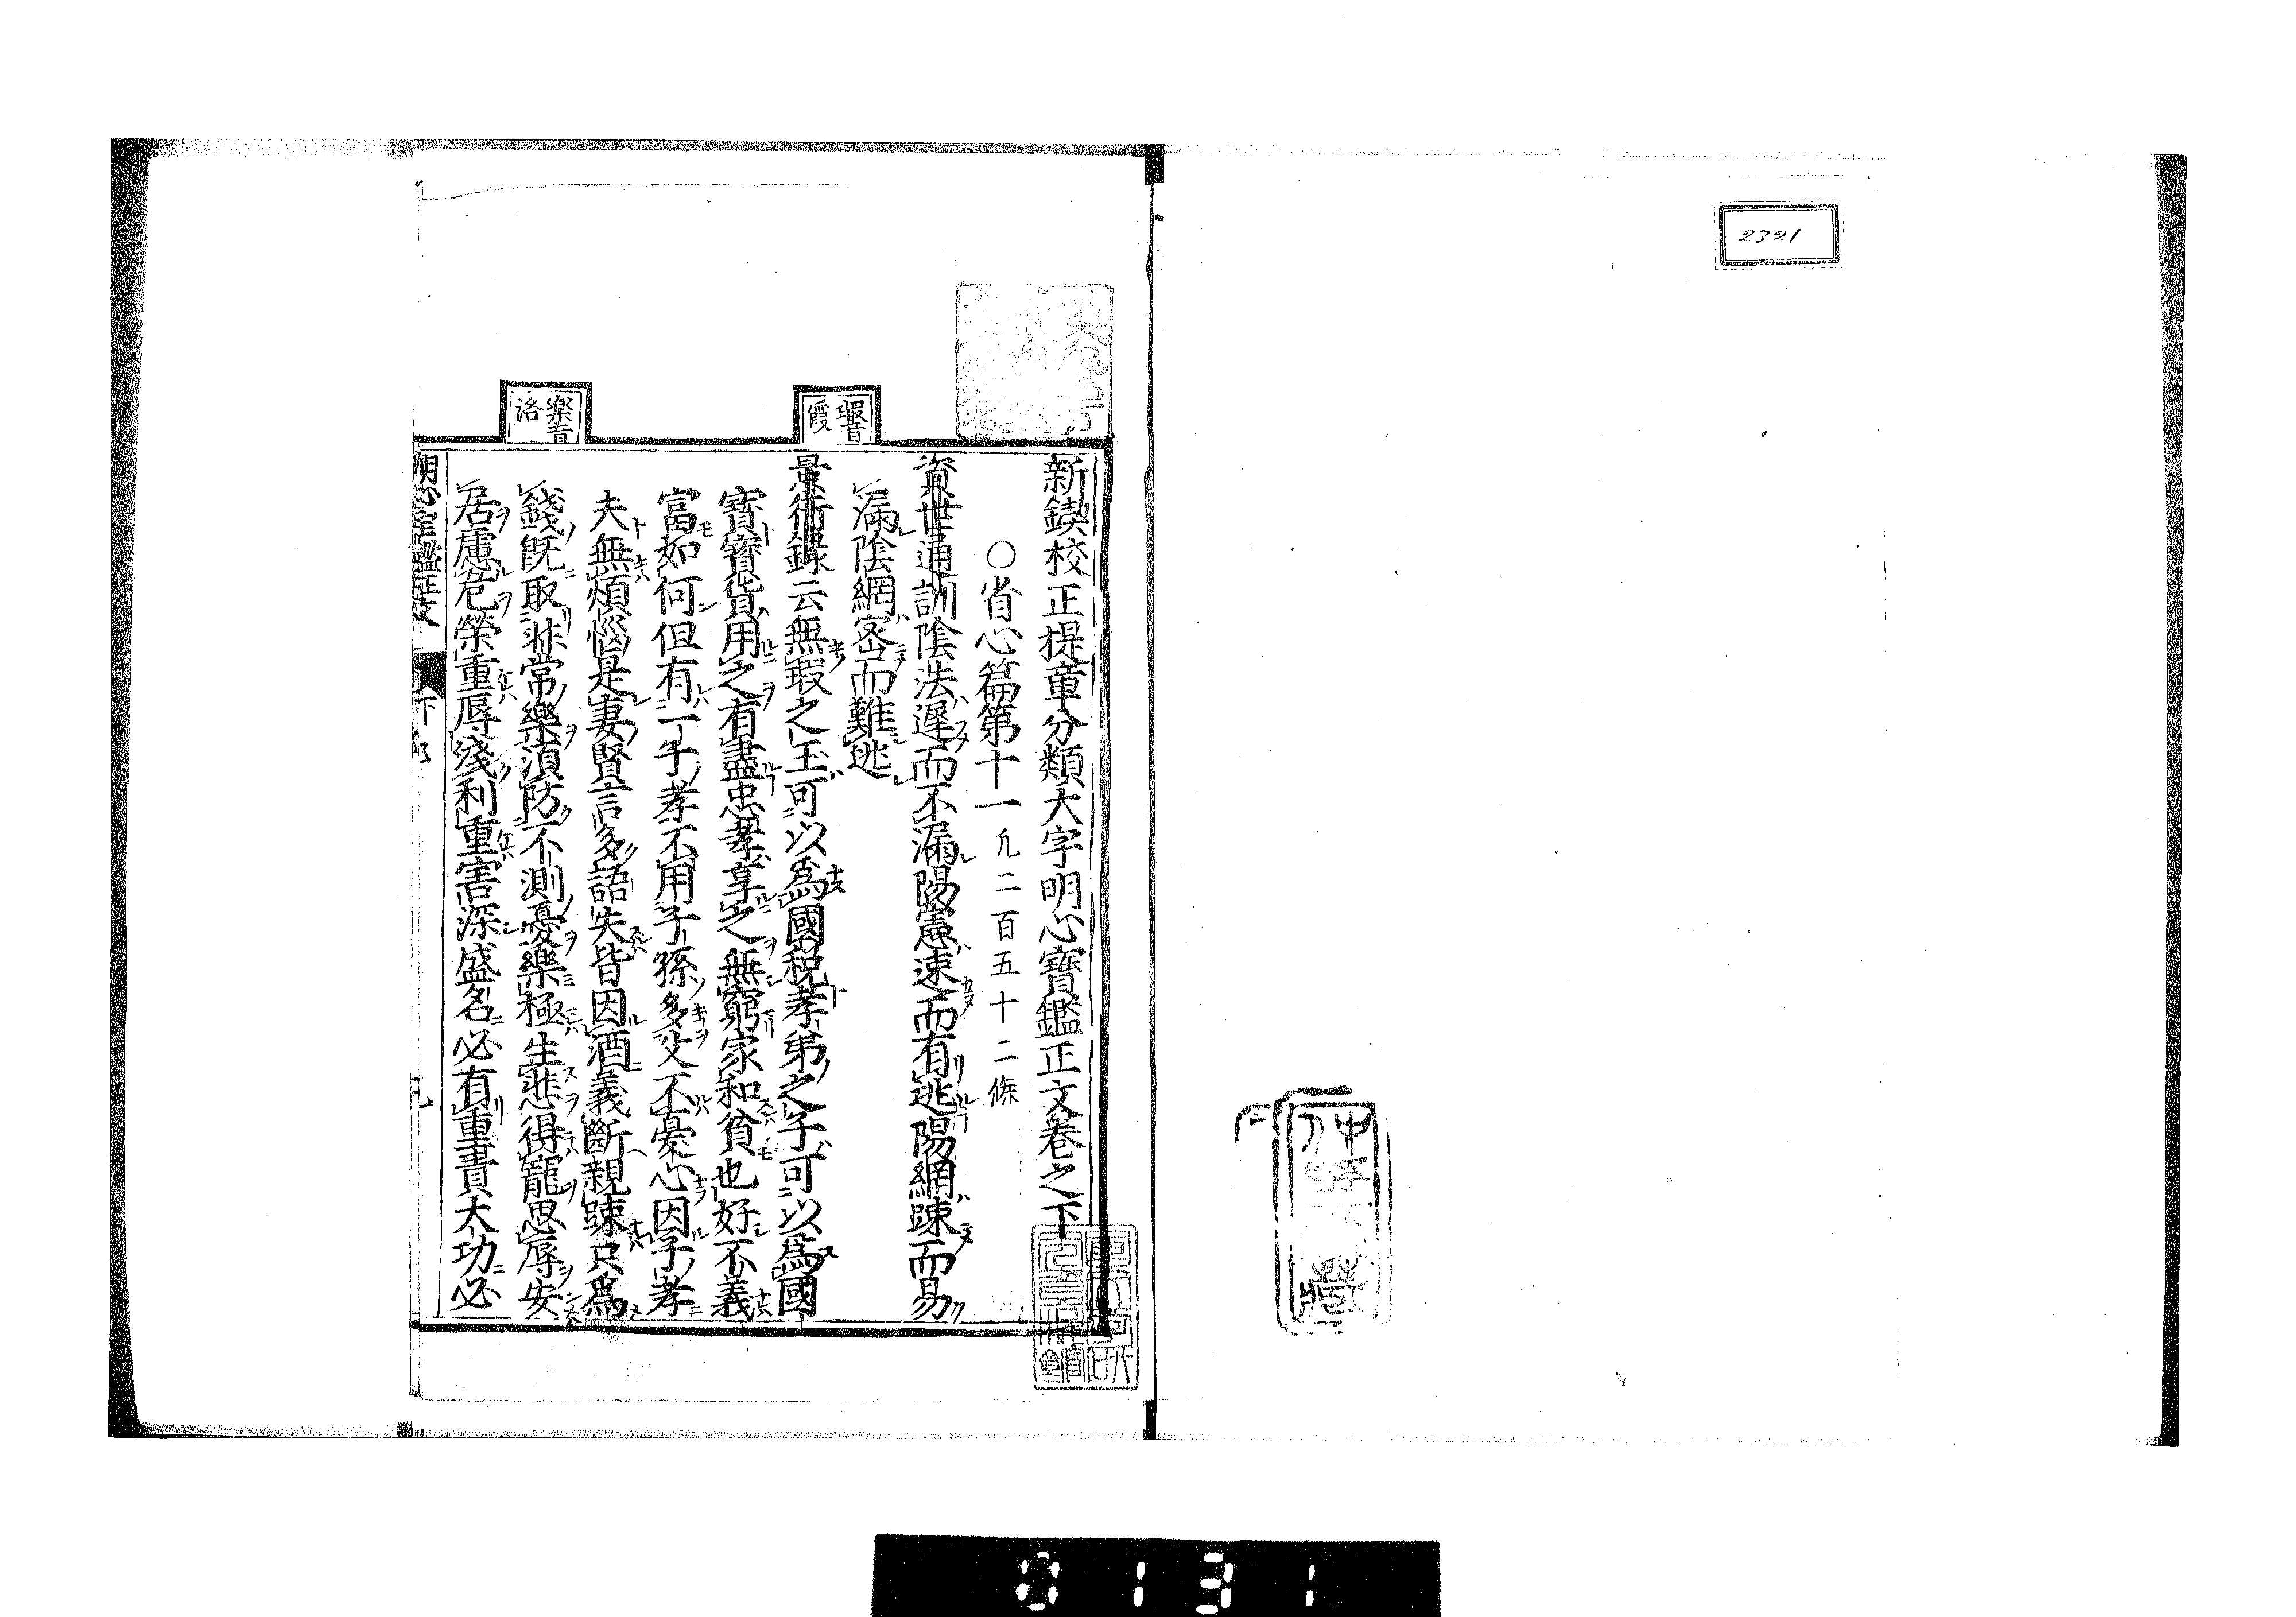 2321
新鍥校正提章分類大字明心寶鑑正文卷之下
○省心篇第十一 凢二百五十二條
資世通訓陰法遲而不漏陽憲速而有逃陽網踈而易
漏陰網宻而難逃
景行錄云無瑕之玉可以為國稅孝弟之子可以為國
寳寳貨用之有盡忠孝享之無窮家和貧也好不義
富如何但有一子孝不用子孫多父不憂心因子孝
夫無煩惱是妻賢言多語失皆因酒義斷親踈只為
錢旣取非常樂湏防不測憂樂極生悲得寵思辱安
居慮危榮重辱淺利重害深盛名必有重責大功必
瑕音
霞
樂音
洛
明心宝鑑正文
下
0131